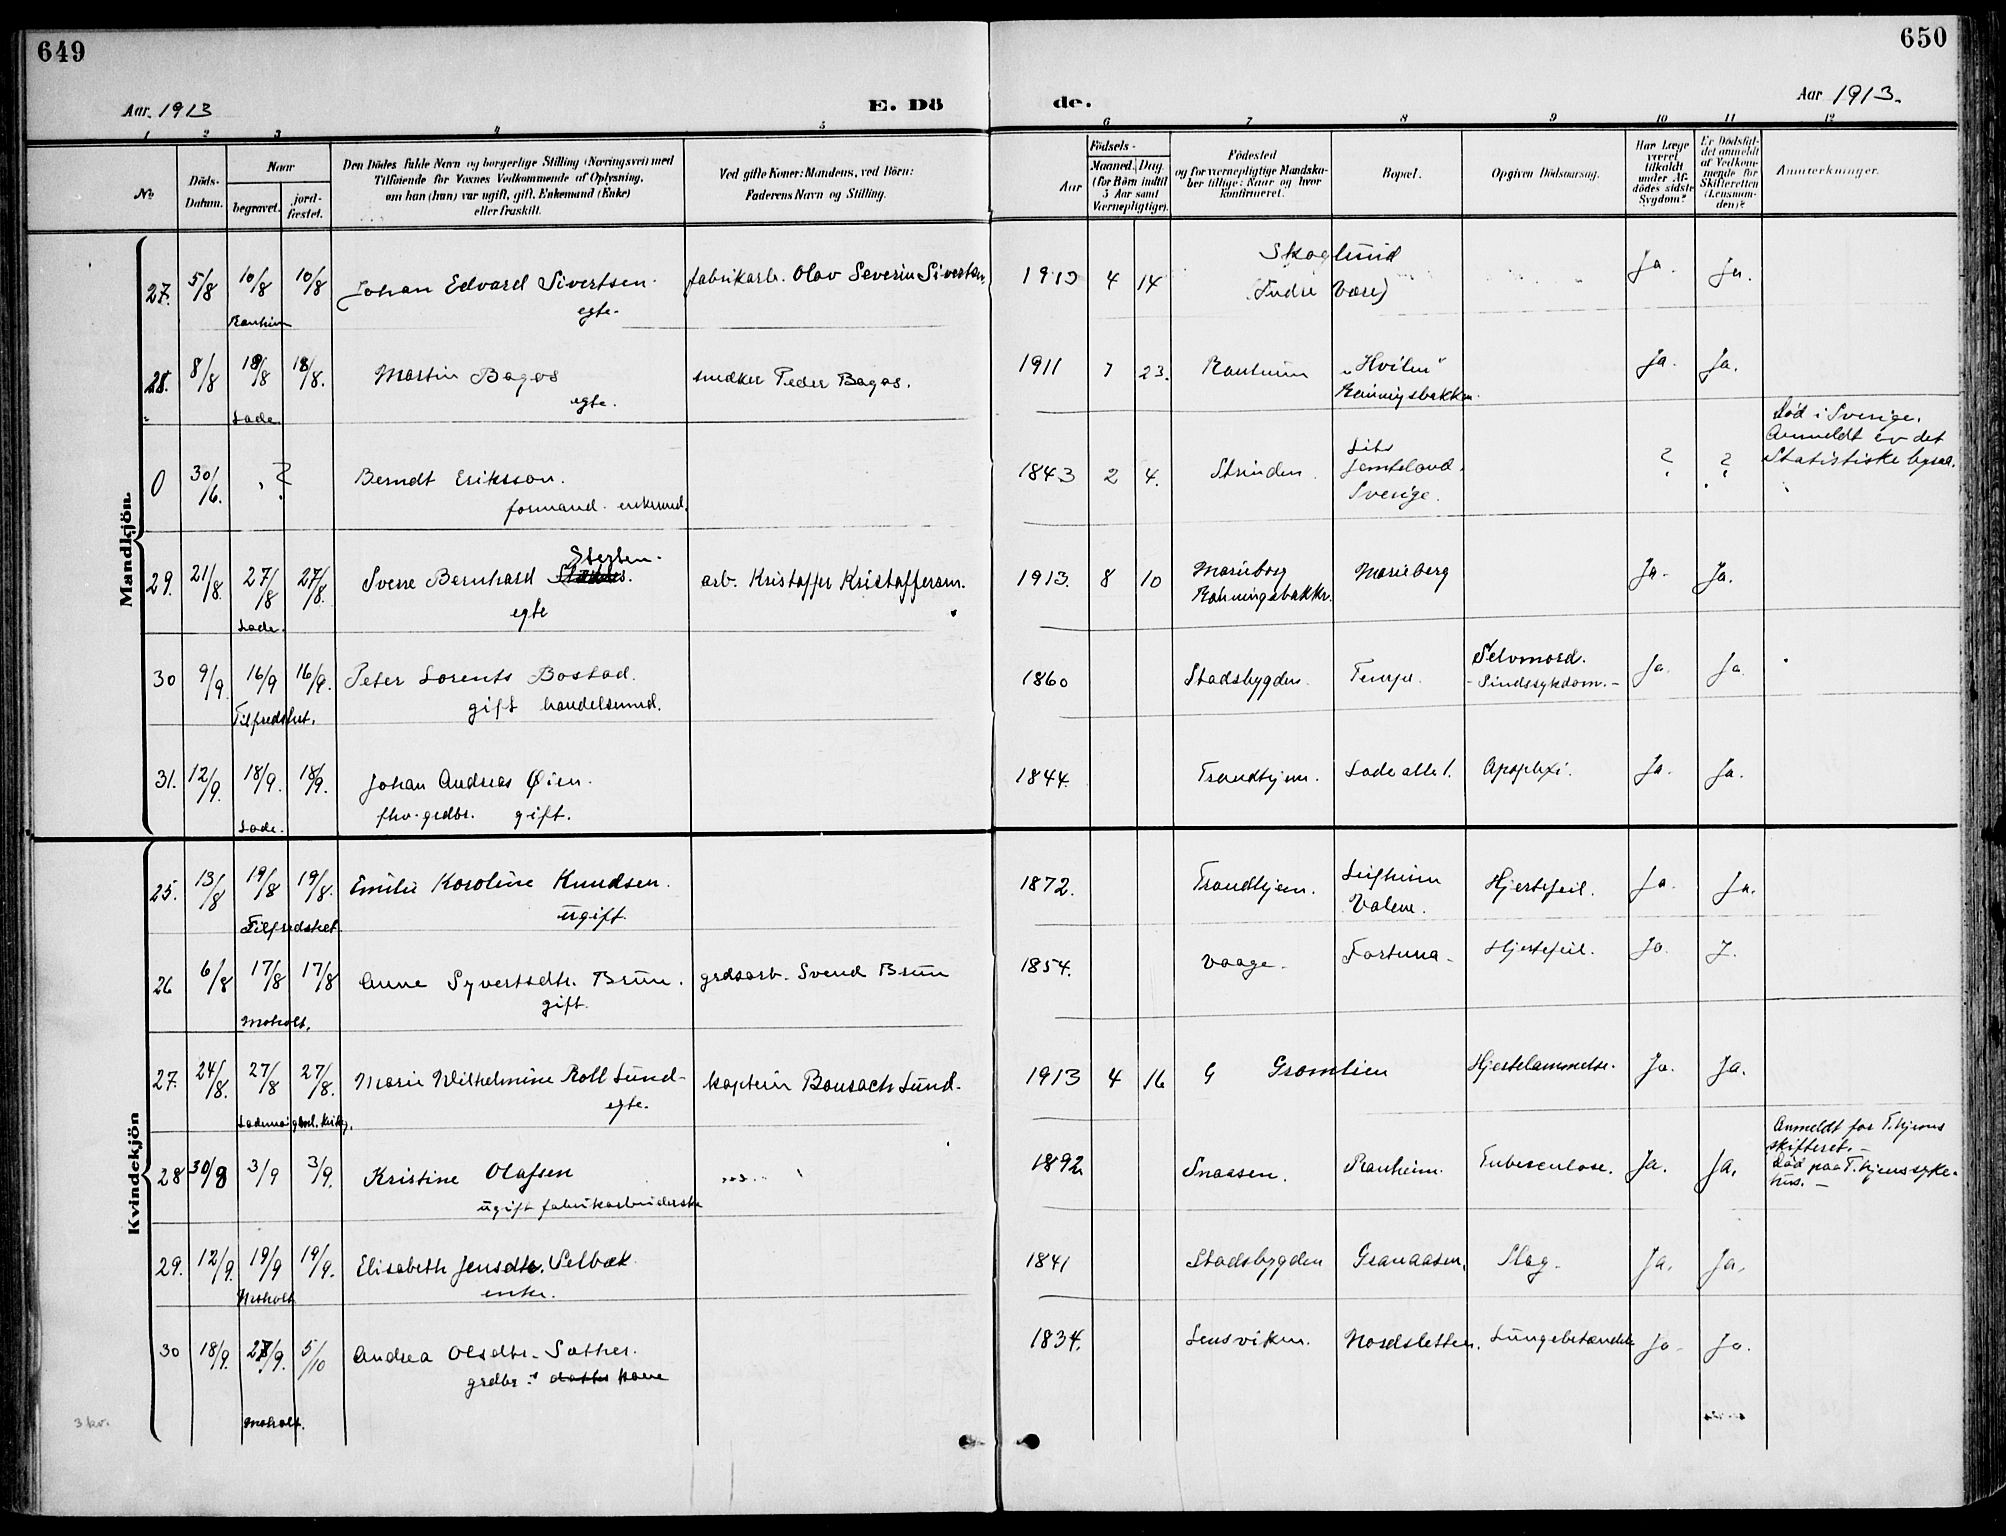 649
650
Aar. 1913
E. Dö
de.
Aar 1913.
1 2 3 4 5 6 7 8 9 10 11 12
No
Döds-Datum.
Naar
begravet.
jord-fæstet.
Den Dödes fulde Navn og borgerlige Stilling (Næringsvei) med
Tilföiende for Voxnes Vedkommende af Oplysning,
om han (hun) var ugift, gift, Enkemand (Enke)
eller fraskilt.
Ved gifte Koner: Mandens, ved Börn:
Faderens Navn og Stilling.
Födsels-
Aar
Maaned.
Dag.
(for Börn indtil
5 Aar samt
Værnepligtige).
Födested
og for værnepligtige Mandska-
ber tillige: Naar og hvor
konfirmeret.
Bopæl.
Opgiven Dödsaarsag.
Har Læge
været
tilkaldt
under Af-
dödes sidste
Sygdom?
Er Dödsfal-
det anmeldt
af Vedkom-
mende for
Skifteretten
(Lensman-
den)?
Anmærkninger.
Mandkjön.
27. 5/8 10/8 10/8 Johan Edvard Sivertsen. fabrikarb. Olav Severin Sivertsen. 1913 4 14 Skoglund Ja. Ja.
Ranheim egte. (Indre Være)
28. 8/8 18/8 18/8. Martin Bagøs snedker Peder Bagøs. 1911 7 23. Ranheim "Hvilen" Ja. Ja.
Lade. egte.
0 30/16. ? Berndt Eriksson. 1843 2 4. Strinden Lit, Jemteland. Sverige. ? ? Død i Sverige. Anmeldt av det Statistiske
formand. enkemd.
29. 21/8. 27/8 27/8. Sverre Bernhard Stezten. arb. Kristoffer Kristoffersen. 1913. 8 10 Marieborg Marieberg Ja. Ja.
Lade. egte
30 9/9. 16/9 16/9. Peter Lorents Bostad. 1860 Stadsbygden. Tempe. Selvmord. Ja. Ja.
Tilfredshet. gift handelsmd. -Sindssykdom.-
31. 12/9. 18/9. 18/9. Johan Andreas Øien. 1844. Trondhjem. Lade alle 1. Apoplexi. Ja. Ja.
Lade. fhv. grdbr. gift.
Kvindekjön
25. 13/8 19/8 19/8. Emilie Karoline Knudsen. 1872. Trondhjem. Hjertefeil. Ja. Ja.
Tilfredshet ugift.
26 6/8 17/8 17/8 Anne Syvertsdtr. Brun. grdsarb. Svend Brun 1854. Vaage. Fortuna. Hjertefeil. Ja. J.
Moholt. gift.
27. 24/8. 27/8 27/8. Marie Wilhelmine Roll Lund- kaptein Bousach Lund. 1913 4 16 G Gromlien Hjertelammelse. Ja. Ja.
egte.
28 30/8 3/9 3/9. Kristine Olafsen 1892 Snaasen. Ranheim. Tuberculose. Ja. Ja. Anmeldt for T.hjems skifteret.- Død paa T.hjems sykehus.-
ugift fabrikarbeiderske
29. 12/9. 19/9 19/9. Elisabeth Jensdtr. Selbæk 1841 Stadsbygden Granaasen. Slag. Ja. Ja.
Moholt enke.
30 18/9. 27/9. 5/10 Andrea Olsdtr. Sæther. 1834. Lensviken. Nordsletten. Lungebetændelse Ja. Ja.
grdbr. kone
Moholt.
3 kv.